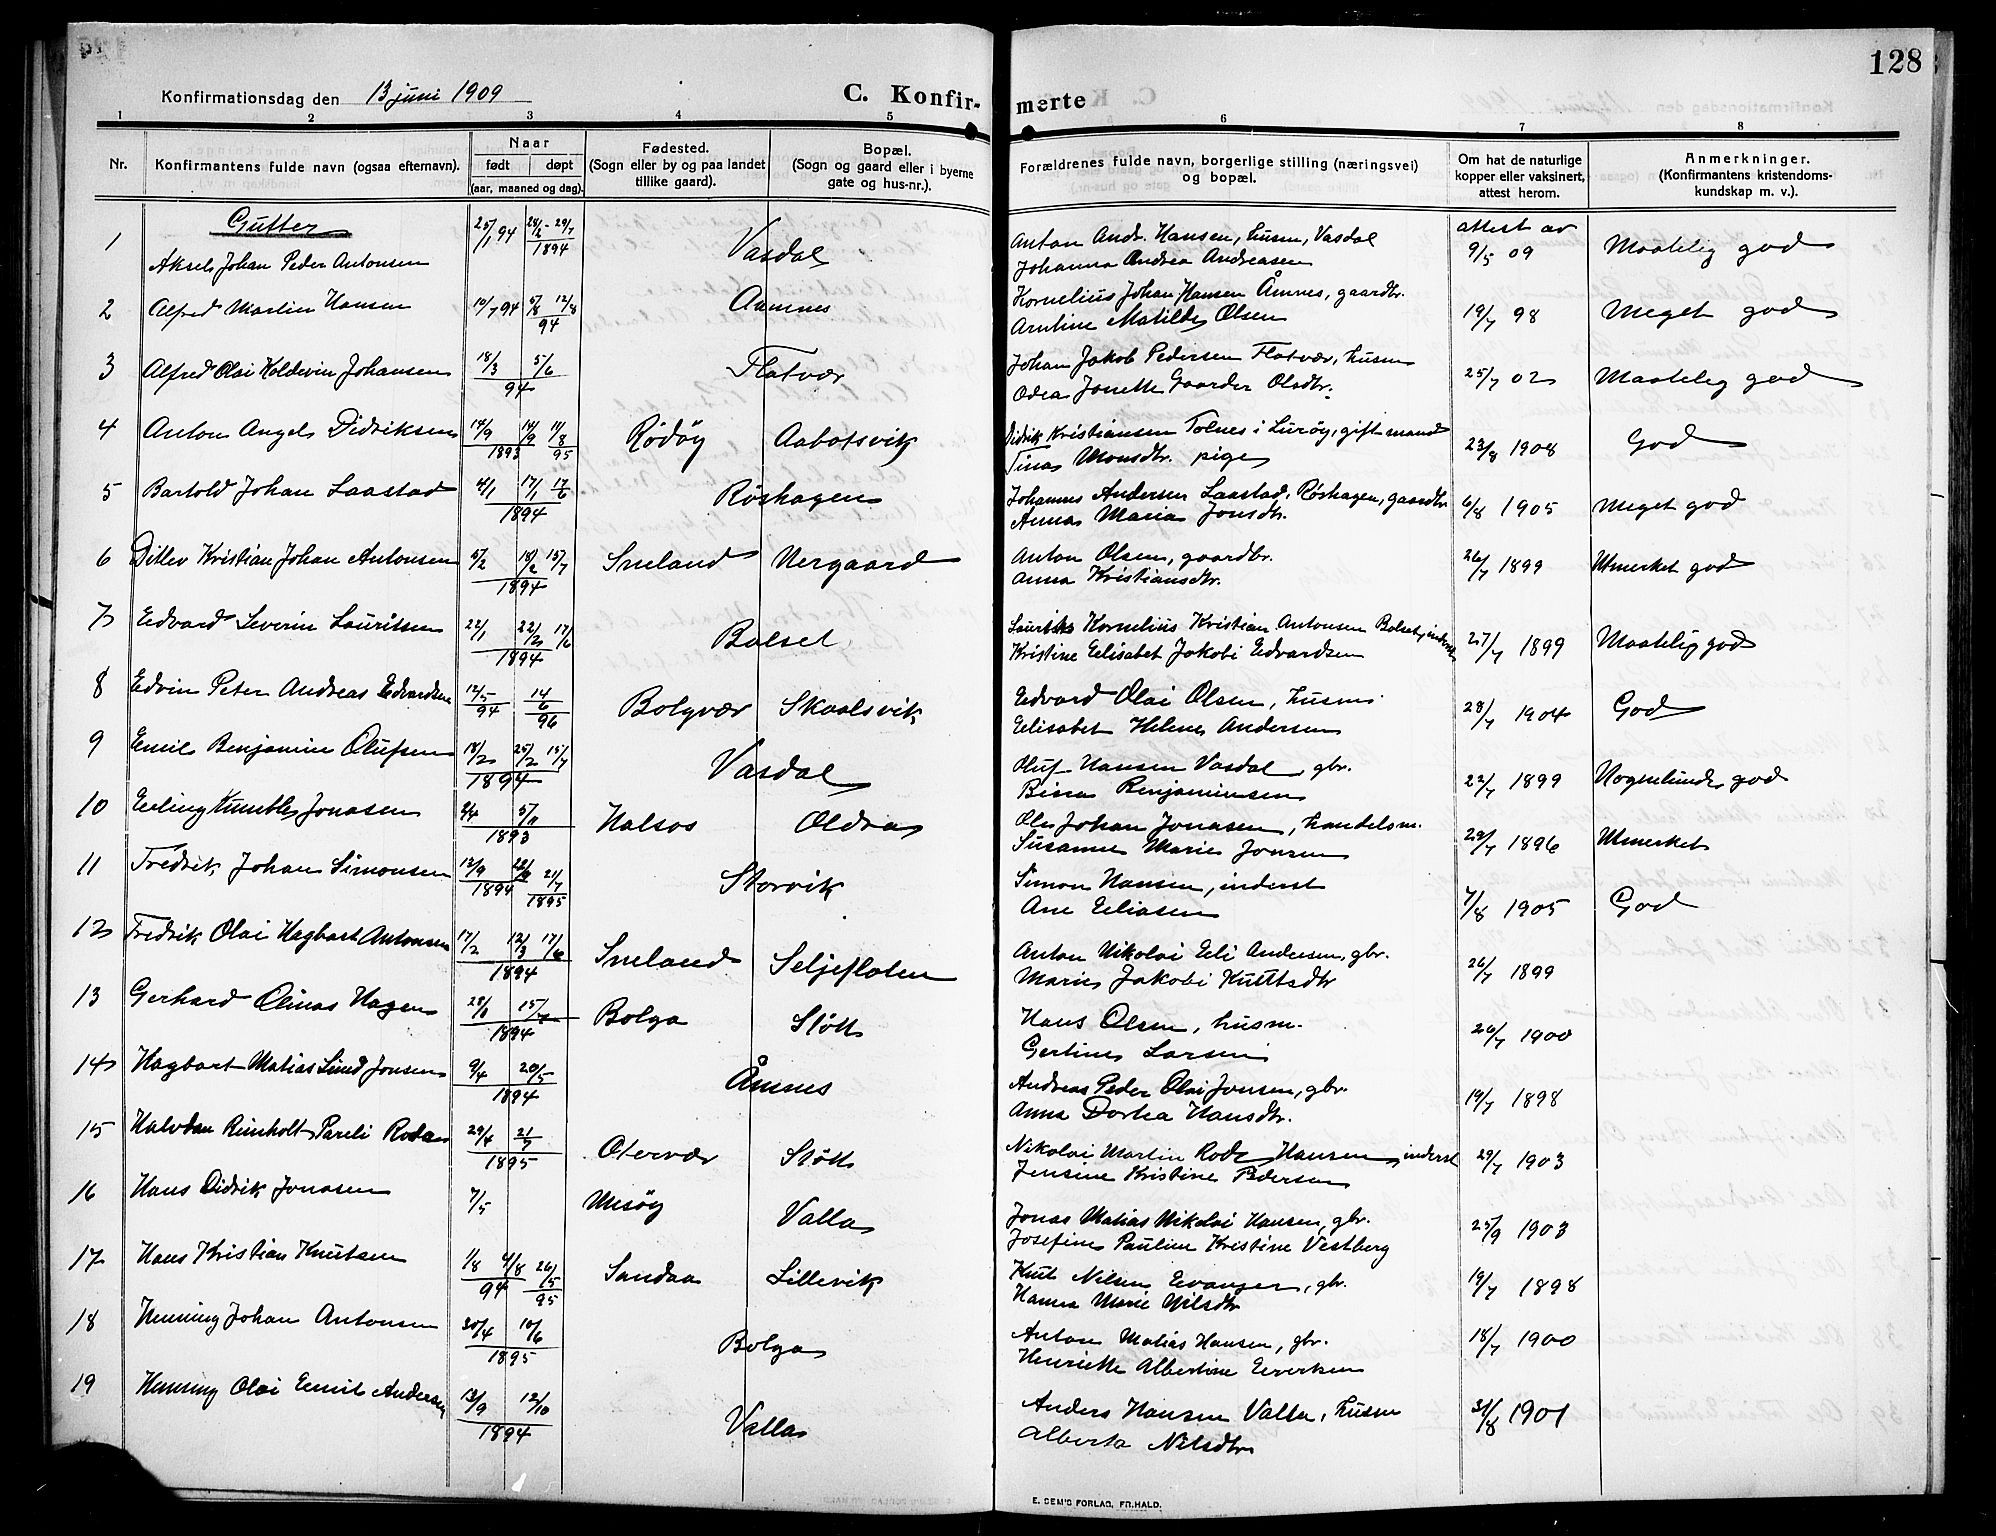 128
Konfirmationsdag den 13 juni 1909
C. Konfirmerte
1 2 3 4 5 6 7 8
Nr. Konfirmantens fulde navn (ogsaa efternavn). Naar født døpt (aar, maaned og dag). Fødested. (Sogn eller by og paa landet tillike gaard). Bopæl. (Sogn og gaard eller i byerne gate og hus-nr.). Forældrenes fulde navn, borgerlige stilling (næringsvei) og bopæl. Om hat de naturlige kopper eller vaksinert, attest herom. Anmerkninger. (Konfirmantens kristendomskundskap m. v.).
Gutter
1 Aksel Johan Peder Antonsen 25/1 94 28/2 - 29/7 1894 Vasdal Anton Andr. Hansen, husm, Vasdal attest av 9/5 09 Maatelig god
Johanna Andrea Andreasen
2 Alfred Martin Hansen 10/7 94 5/8 12/8 94 Aamnes Kornelius Johan Hansen Åmnes, gaardbr. 19/7 98 Meget god
Arntine Matilde Olsen
3 Alfred Olai Koldevin Johansen 18/3 5/6 94 Flatvær Johan Jakob Pedersen Flatvær, husm 25/7 02 Maatelig god
Odea Jonette Gaarder Olsdtr.
4 Anton Angel Didriksen 14/9 14/9 1893 11/8 95 Rödöy Aabotsvik Didrik Kristiansen Tolnes i Luröy, gift mand 23/8 1908 God
Tina Monsdtr. pige
5 Bartold Johan Laastad 4/1 17/1 17/6 1894 Røshagen Johannes Andersen Laastad, Røshagen, gaardbr 6/8 1905 Meget god
Anna Maria Jonsdtr.
6 Ditlev Kristian Johan Antonsen 5/2 18/2 15/7 1894 Sneland Nergaard Anton Olsen, gaardbr. 26/7 1899 Utmerket god
Anna Kristiansdtr.
7 Edvard Severin Lauritsen 22/1 22/2 17/6 1894 Bolset Laurits Kornelius Kristian Antonsen Bolset, inderst 27/7 1899 Maatelig god
Kristine Elisabet Jakobi Edvardsen
8 Edvin Peter Andreas Edvardsen 12/5 94 14/6 96 Bolgvær Skaalsvik Edvard Olai Olsen, husm. 28/7 1904 God
Elisabet Helene Andersen
9 Emil Benjamin Olufsen 18/2 25/2 15/7 1894 Vasdal Oluf Hansen Vasdal, gbr. 22/7 1899 Nogenlunde god
Benjaminsen
10 Erling Jonasen 5/11 1893 Halsos Oldra Ole Johan Jonasen, handelsm. 29/7 1896 Utmerket
Susanne Marie Jonsen
11 Fredrik Johan Simonsen 12/9 1894 21/7 1895 Storvik Simon Hansen, inderst 7/8 1905 God
Ane Eliasen
12 Fredrik Olai Hagbart Antonsen 17/2 12/3 17/6 1894 Sneland Seljeflaten Anton Nikolai Eli Andersen, gbr. 26/7 1899
Marie Jakobi
13 Gerhard Olinas Hagen 15/7 1894 Bolga Støtt Hans Olsen, husm. 26/7 1900
Gertine Larsen
14 Hagbart Matias Lined Jonsen 9/4 20/5 1894 Åmnes Andreas Peder Olai Jonsen, gbr. 19/7 1898
Anna Dortea Hansdtr.
15 Halvdan Reinholt Pareli Roda 29/4 21/7 1895 Otervær Støtt Nikolai Martin Rode Hansen, inderst 29/7 1903
Jensine Kristine Pedersen
16 Hans Didrik Jonasen 7/5 Mesöy Valla Jonas Matias Nikolai Hansen, gbr. 25/9 1903
Josefine Pauline Kristine Vestberg
17 Hans Kristian Knutsen 1/8 4/8 94 26/5 95 Sandaa Lillevik Knut Nilsen Evanger, gbr. 19/7 1898
Hanna Marie Nilsdtr
18 Henning Johan Antonsen 30/4 10/6 1895 Bolga Anton Matias Hansen, gbr. 18/7 1900
Henrikke Albertine Evensen
19 Henning Olai Emil Andersen 13/9 12/10 1894 Valla Anders Hansen Valla, husm 31/8 1901
Alberta Nilsdtr
E. SEM'S FORLAG, FR.HALD.